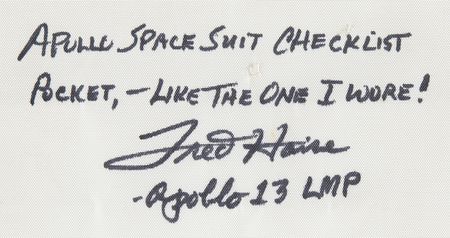 APOLLO SPACE SUIT CHECKLIST
POCKET, - LIKE THE ONE I WORE!
Fred Haise
- Apollo 13 LMP